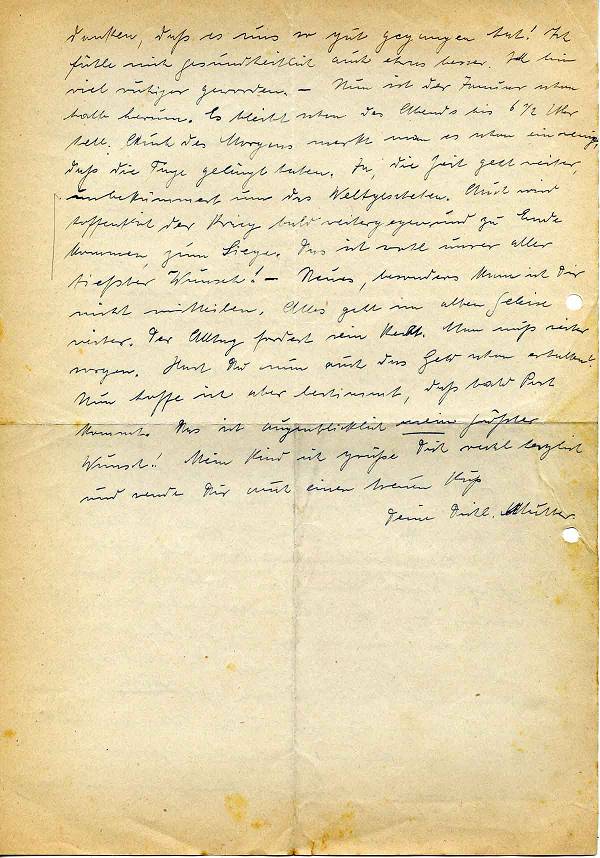 danken, daß es uns so gut gegangen hat! Ich
fühle mich gesundheitlich auch etwas besser. Ich bin
viel ruhiger geworden. — Nun ist der Januar schon
bald herum. Es bleibt schon des Abends bis 6 ½ Uhr
hell. Auch des Morgens merkt man es schon ein wenig,
daß die Tage gelängt haben. Ja, die Zeit geht weiter,
unbekümmert um das Weltgeschehen. Auch wird
hoffentlich der Krieg bald weitergehen und zu Ende
kommen, zum Siege. Das ist wohl unser aller
tiefster Wunsch! — Neues, besonders kann ich Dir
nicht mitteilen. Alles geht im alten Geleise
weiter. Der Alltag fordert sein Recht. Man muß weiter
sorgen. Hast Du nun auch das Geld schon erhalten?
Nun hoffe ich aber bestimmt, daß bald Post
kommt. Das ist augenblicklich mein größter
Wunsch!! Mein Kind ich grüße Dich recht herzlich
und sende Dir auch einen treuen Kuß
Deine Dichl. Mutter